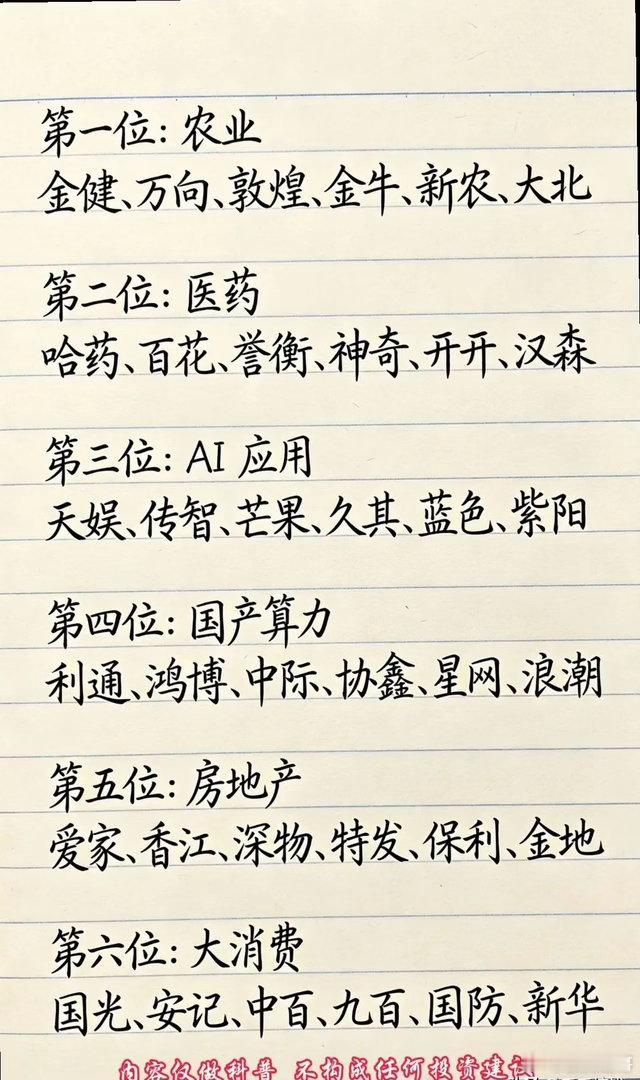 第一位：农业
金健、万向、敦煌、金牛、新农、大北
第二位：医药
哈药、百花、誉衡、神奇、开开、汉森
第三位：AI 应用
天娱、传智、芒果、久其、蓝色、紫阳
第四位：国产算力
利通、鸿博、中际、协鑫、星网、浪潮
第五位：房地产
爱家、香江、深物、特发、保利、金地
第六位：大消费
国光、安记、中百、九百、国防、新华
内容仅做科普 不构成任何投资建议